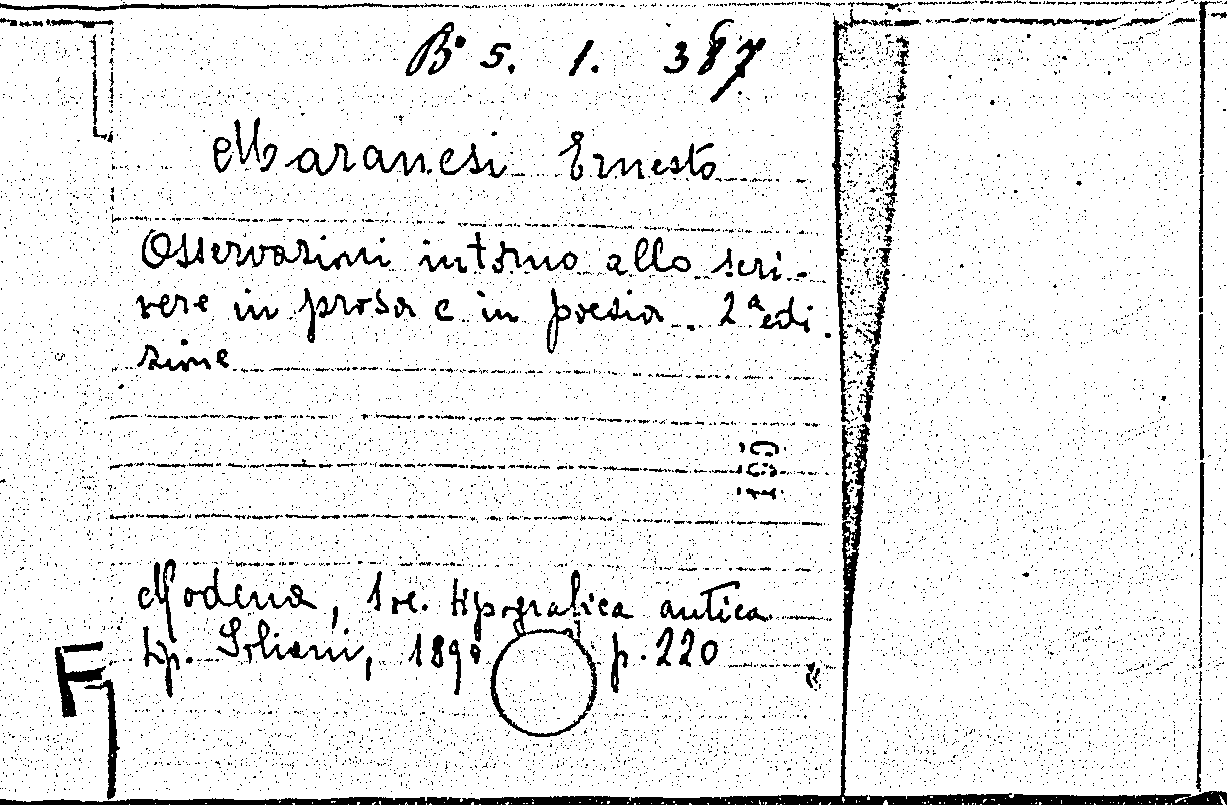 B° 5. 1. 387
Maranesi Ernesto
Osservazioni intorno allo scri-
vere in prosa e in poesia. 2ª edi-
zione
Modena, Soc. tipografica antica
tip. Soliani, 189 p. 220
F